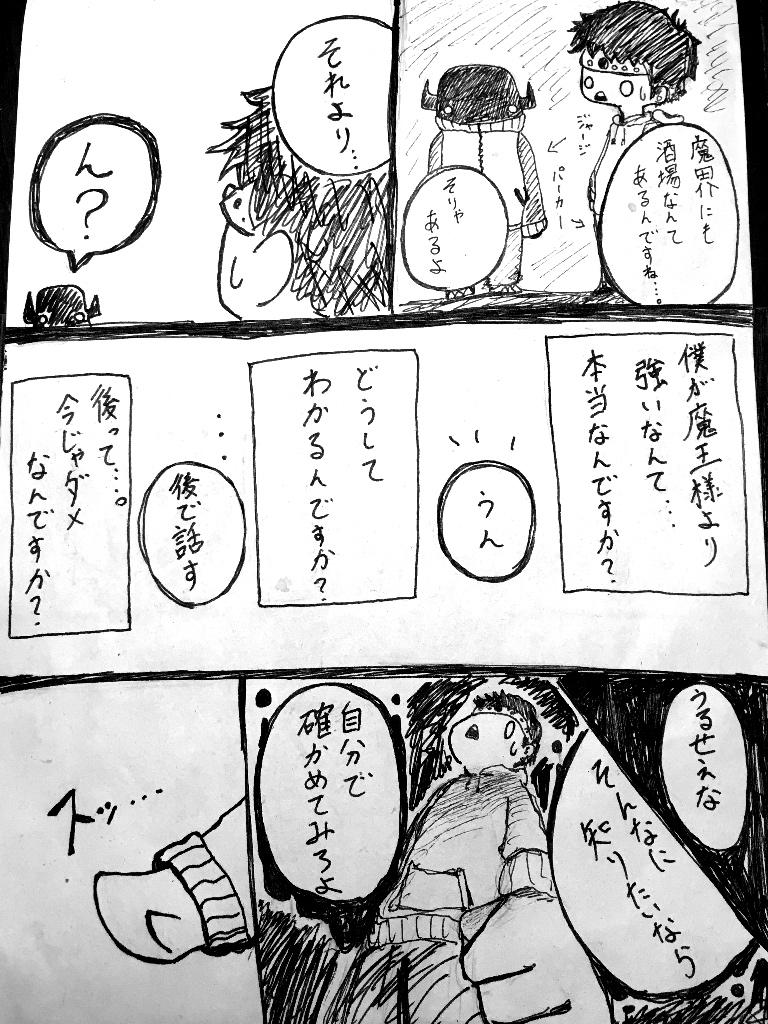 魔界にも
酒場なんて
あるんですね…。
ジャージ
パーカー
そりゃ
あるよ
それより…
ん？
僕が魔王様より
強いなんて…
本当なんですか？
うん
どうして
わかるんですか？
…
後で話す
後って…。
今じゃダメ
なんですか？
うるせえな
そんなに
知りたいなら
自分で
確かめてみろよ
トッ…